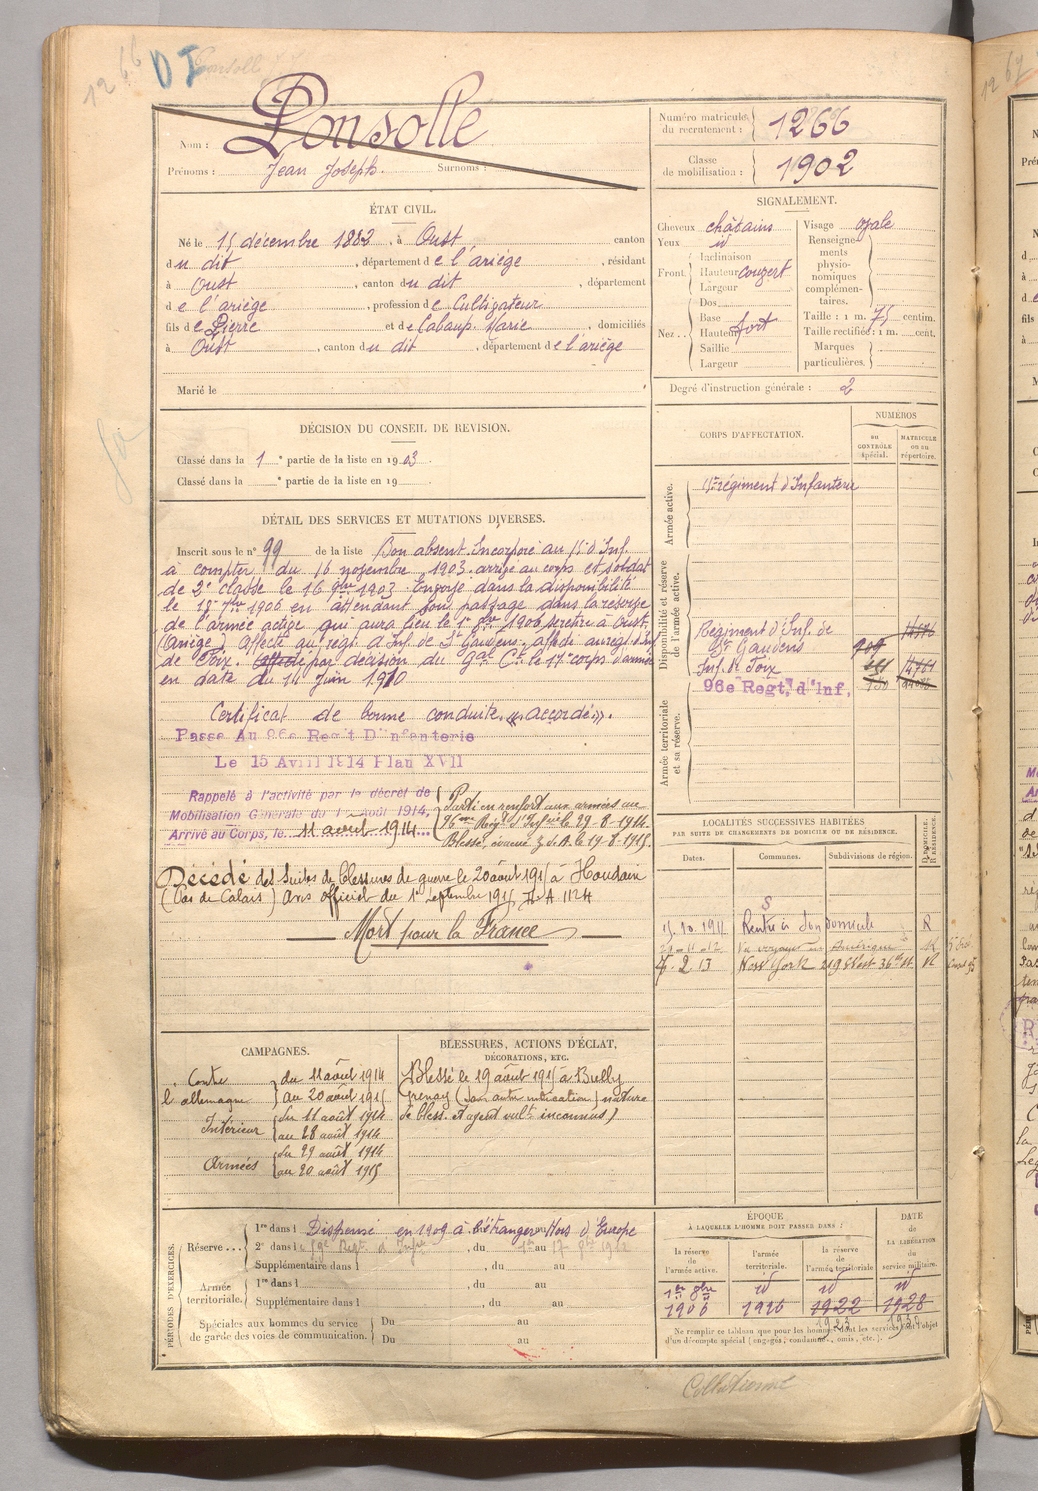 1266
DI
Nom : Ponsolle
Prénoms : Jean Joseph. Surnoms :
Numéro matricule du recrutement : 1266
Classe de mobilisation : 1902
ÉTAT CIVIL.
Né le 15 décembre 1882, à Oust canton
du dit, département de l'ariège, résidant
à Oust, canton du dit, département
de l'ariège, profession de Cultivateur
fils de Pierre et de Cabaup Marie, domiciliés
à Oust, canton du dit, département de l'ariège
Marié le
SIGNALEMENT.
Cheveux châtains
Yeux id
Front Inclinaison
Hauteur couvert
Largeur
Nez Dos
Base
Hauteur fort
Saillie
Largeur
Visage ovale
Renseignements physionomiques complémentaires.
Taille : 1 m. 75 centim.
Taille rectifiée : 1 m. cent.
Marques particulières.
Degré d'instruction générale : 2
DÉCISION DU CONSEIL DE REVISION.
Classé dans la 1 e partie de la liste en 1903.
Classé dans la e partie de la liste en 19
DÉTAIL DES SERVICES ET MUTATIONS DIVERSES.
Inscrit sous le n° 99 de la liste Bon absent. Incorporé au 15e d'Inf.
à compter du 16 novembre 1903. arrivé au corps et soldat
de 2e classe le 16 9bre 1903. Envoyé dans la disponibilité
le 18 7bre 1906 en attendant son passage dans la réserve
de l'armée active qui aura lieu le 1er 8bre 1906 se retire à Oust,
(Ariège) Affecté au régt d'Inf. de St Gaudens. affecté au régt d'Inf
de Foix. par décision du Gal Ct le 17e corps d'armée
en date du 14 Juin 1910
Certificat de bonne conduite « accordé ».
Passé Au 96e Regit D'infanterie
Le 15 Avril 1914 Plan XVII
Rappelé à l'activité par le décret de
Mobilisation Générale du 1er Août 1914,
Arrivé au Corps, le 11 août 1914
Parti en renfort aux armées au
96ème Régt d'Infie le 29-8-1914.
Blessé, évacué Z. d. A. le 19-8-1915.
Décédé des suites de blessures de guerre le 20 août 1915 à Houdain
(Pas de Calais) Avis officiel du 1er Septembre 1915
Mort pour la France
CORPS D'AFFECTATION.
NUMÉROS
au CONTRÔLE spécial.
MATRICULE ou au répertoire.
Armée active.
15e régiment d'Infanterie
Disponibilité et réserve de l'armée active.
Régiment d'Inf. de
St Gaudens
Inf. de Foix
96e Regt. d'Inf.
Armée territoriale et sa réserve.
LOCALITÉS SUCCESSIVES HABITÉES
PAR SUITE DE CHANGEMENTS DE DOMICILE OU DE RÉSIDENCE.
Dates. Communes. Subdivisions de région. D. DOMICILE. R. RÉSIDENCE.
S
15.10.1911 Rentré à son domicile R
29-11-12 En voyage en Amérique R
7.2.13 New York 219 West 36th St. R
CAMPAGNES.
Contre l'allemagne du 11 août 1914
au 20 août 1915
Intérieur du 11 août 1914
au 28 août 1914
Armées du 29 août 1914
au 20 août 1915
BLESSURES, ACTIONS D'ÉCLAT, DÉCORATIONS, ETC.
Blessé le 19 août 1915 à Bully
Grenay (sans autre indication) nature
de bless. et agent vult inconnus)
PÉRIODES D'EXERCICES.
Réserve 1re dans l Dispensé en 1909 à l'étranger au Hors d'Europe
2e dans l , du au
Supplémentaire dans l , du au
Armée territoriale. 1re dans l , du au
Supplémentaire dans l , du au
Spéciales aux hommes du service de garde des voies de communication. Du au
Du au
ÉPOQUE
À LAQUELLE L'HOMME DOIT PASSER DANS :
DATE de LA LIBÉRATION du service militaire.
la réserve de l'armée active. l'armée territoriale. la réserve de l'armée territoriale.
1er 8bre id id id
1906 1916 1922 1928
1923 1930
Ne remplir ce tableau que pour les hommes dont les services font l'objet
d'un décompte spécial (engagés, condamnés, omis, etc.).
Collationné